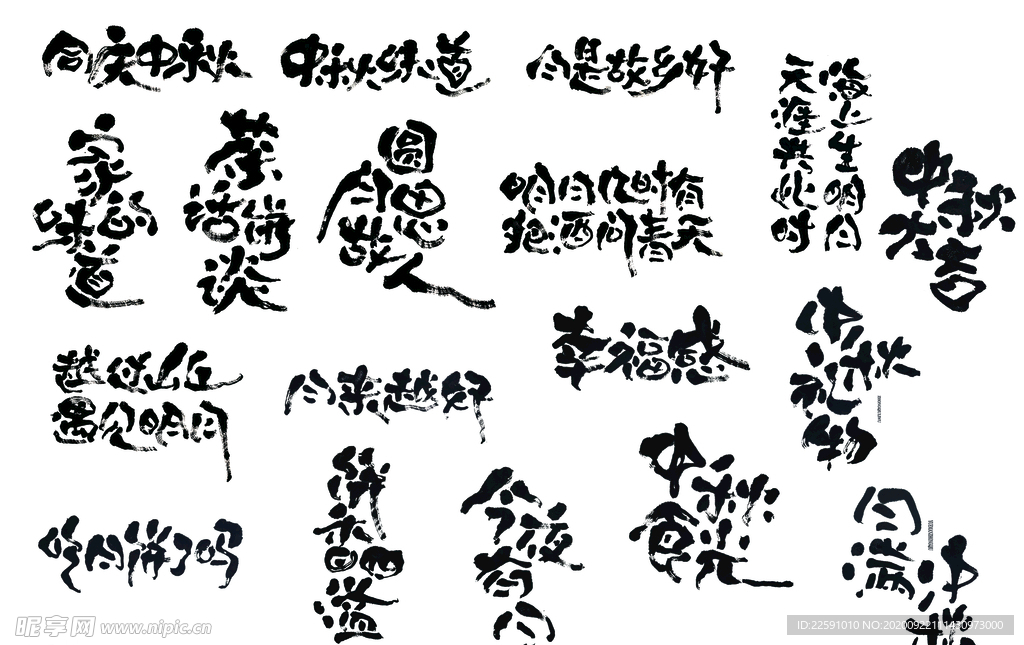 合庆中秋
中秋味道
月是故乡好
天涯共此时
海上生明月
家的
味道
茶
话術
谈
圆
月思
故
人
明月几时有
把酒问青天
中秋
大吉
幸福感
中秋
礼物
越过山丘
遇见明月
月来越好
吃月饼了吗
饼
香四
溢
今夜
有
月
中秋
食光
月
满中
昵享网 www.nipic.cn
ID:22591010 NO:20200922111430973000